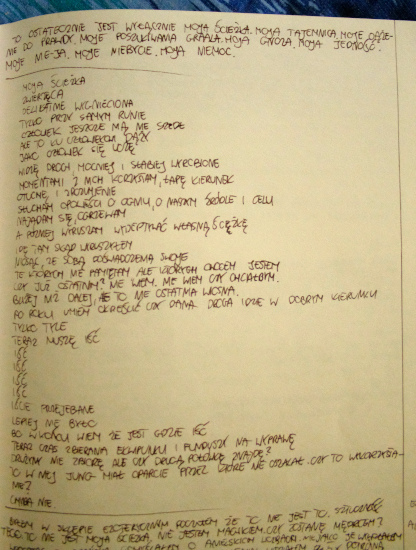 TO OSTATECZNIE JEST WYŁĄCZNIE MOJA ŚCIEŻKA. MOJA TAJEMNICA. MOJE DĄŻE-
NIE DO PRAWDY. MOJE POSZUKIWANIA GRAALA. MOJA GNOZA. MOJA JEDNOŚĆ.
MOJE NIE-JA. MOJE NIEBYCIE. MOJA NIEMOC.
MOJA ŚCIEŻKA
ZWIERZĘCA
DELIKATNIE WYGNIECIONA
TYLKO PRZY SAMYM RUNIE
CZŁOWIEK JESZCZE NIĄ NIE SZEDŁ
ALE TO KU CZŁOWIEKOWI DĄŻY
JAKO CZŁOWIEK SIĘ
WIDZĘ DROGI MOCNIEJ I SŁABIEJ WYROBIONE
MOMENTAMI Z NICH KORZYSTAM, ŁAPĘ KIERUNEK
OTUCHĘ, I ZROZUMIENIE
SŁUCHAM OPOWIEŚCI O OGNIU, O NASZYM ŹRÓDLE I CELU
NAJADAM SIĘ, OGRZEWAM
A PÓŹNIEJ WYRUSZAM WYDEPTYWAĆ WŁASNĄ ŚCIEŻKĘ
IDĘ TAM SKĄD WYRUSZYŁEM
NIOSĄC ZE SOBĄ DOŚWIADCZENIA SWOJE
TE KTÓRYCH NIE PAMIĘTAM ALE KTÓRYCH OWOCEM JESTEM
CZY JUŻ OSTATNIM? NIE WIEM. NIE WIEM CZY CHCIAŁBYM.
BLIŻEJ NIŻ DALEJ, ALE TO NIE OSTATNIA WIOSNA.
PO ROKU UMIEM OKREŚLIĆ CZY DANA DROGA IDZIE W DOBRYM KIERUNKU
TYLKO TYLE
TERAZ MUSZĘ IŚĆ
IŚĆ
IŚĆ
IŚĆ
IŚĆ
IŚĆ
IŚCIE PRZEJEBANE
LEPIEJ NIE BYŁO
BO W KOŃCU WIEM ŻE JEST GDZIE IŚĆ
TERAZ CZAS ZBIERANIA EKWIPUNKU I FUNDUSZY NA WYPRAWĘ
DRUŻYNY NIE ZABIORĘ ALE CZY DRUGĄ POŁÓWKĘ ZNAJDĘ?
TO W NIEJ JUNG MIAŁ OPARCIE PRZEZ KTÓRE NIE OSZALAŁ. CZY TO
NIE?
CHYBA NIE
BYŁEM W SKLEPIE EZOTERYCZNYM POCZUŁEM ŻE TO NIE JEST TO.
TEGO. TO NIE JEST MOJA ŚCIEŻKA, NIE JESTEM MAGIKIEM. CZY ZOSTANĘ MĘDRCEM?
O ANIELSKICH